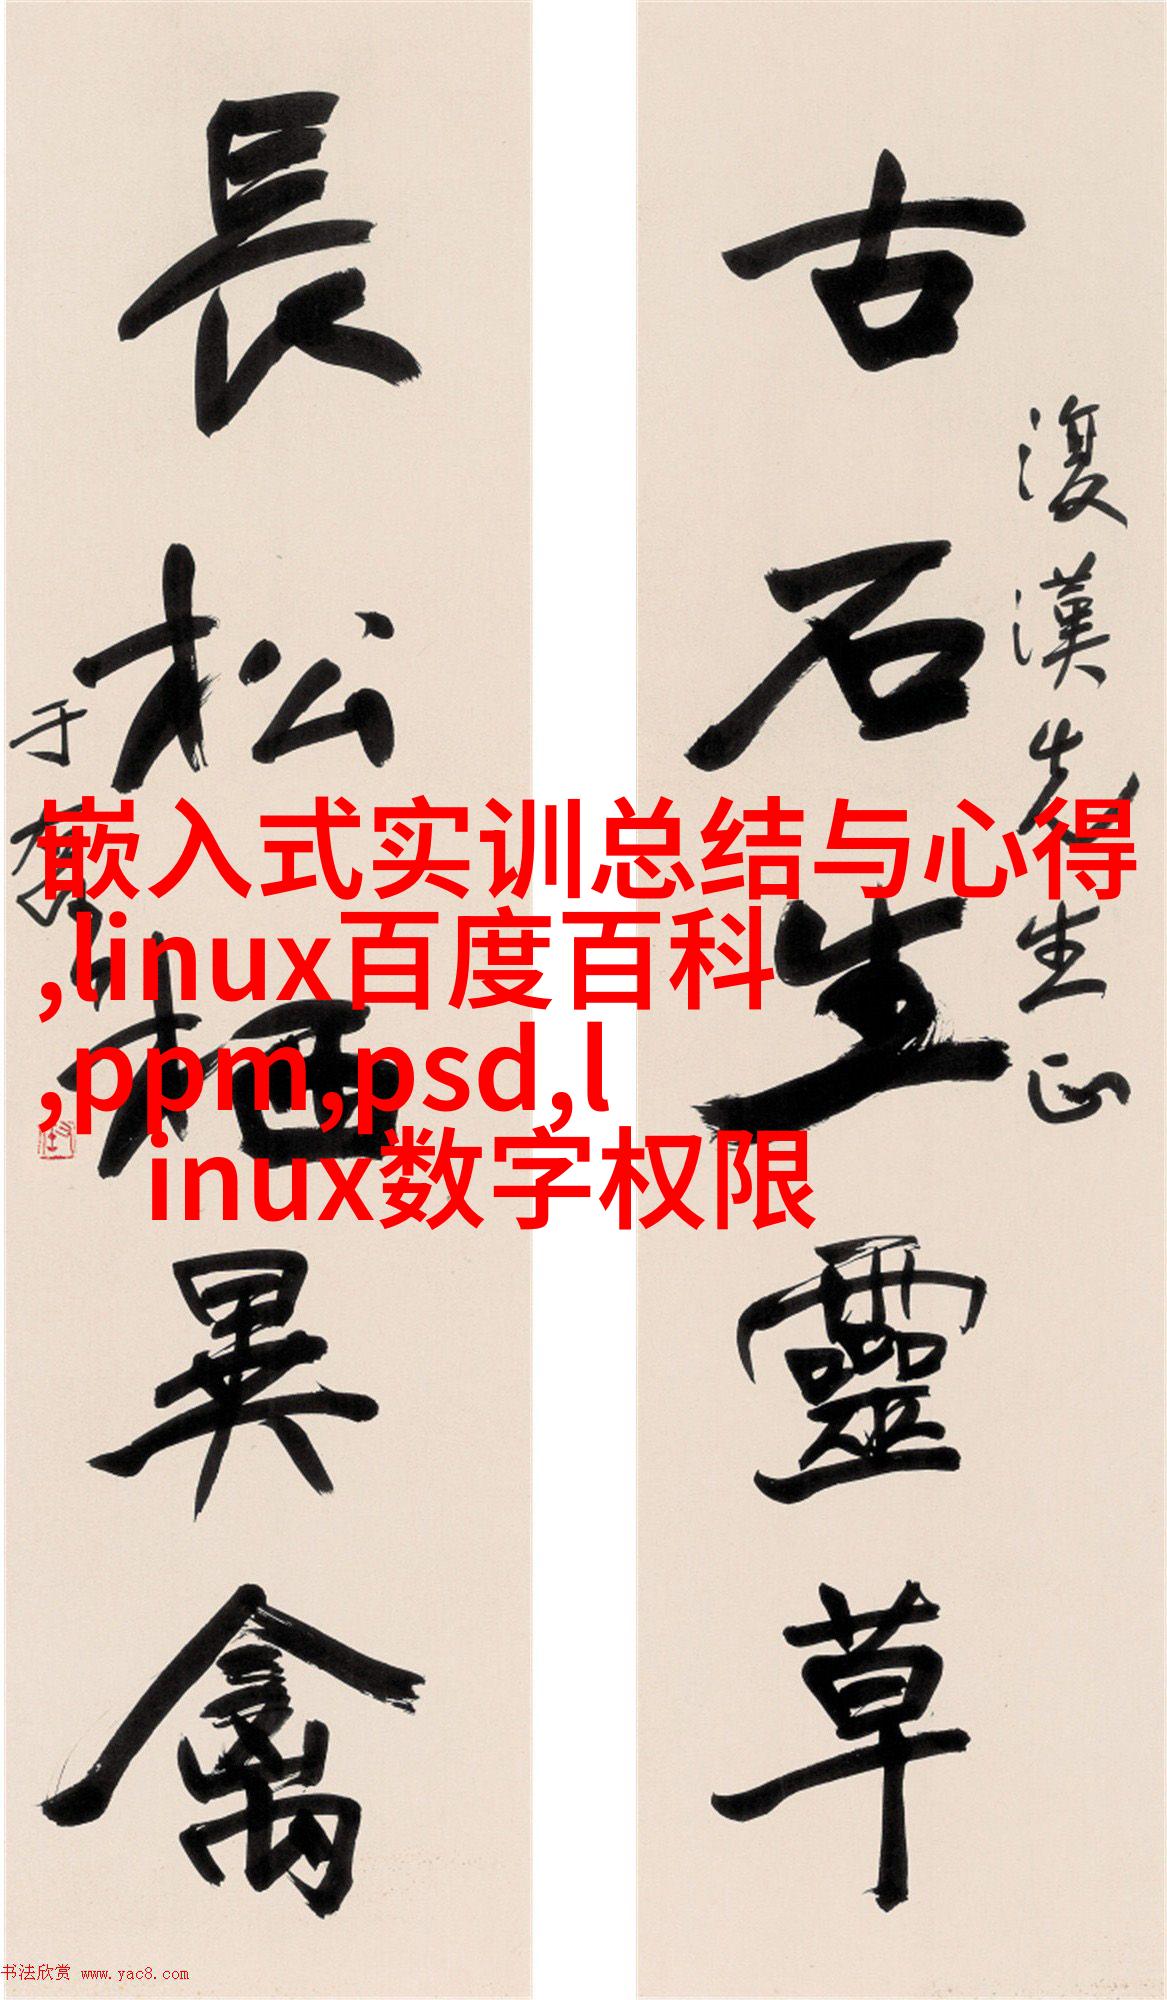 古石生靈草
復漢先生正
長松栖異禽
于右任
嵌入式实训总结与心得
,linux百度百科
,ppm,psd,l
inux数字权限
书法欣赏 www.yac8.com